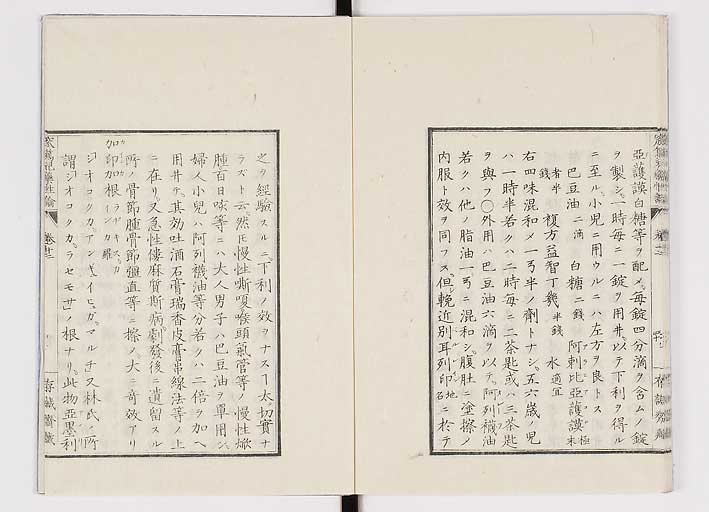 亞護謨白糖等ヲ配メ毎錠四分滴ヲ含ムノ錠
ヲ製シ一時毎ニ一錠ヲ用井以テ下利ヲ得ル
ニ至ル小兒ニ用ウルニハ左方ヲ良トス
巴豆油 二滴 白糖 二錢 阿剌比亞護謨 極末
者半錢 複方益智丁幾 半錢 水 適宜
右四味混和メ一弓半ノ劑トナシ五六歲ノ兒
ハ一時半若クハ二時每ニ二茶匙或ハ三茶匙
ヲ與フ〇外用ハ巴豆油六滴ヲ以テ阿列襪油
若クハ他ノ脂油一弓ニ混和シ腹肚ニ塗擦ノ
內服ト效ヲ同フス但輓近別耳列印 地名 ニ於テ
之ヲ經驗スルニ下利ノ效ヲナスヿ太切實ナ
ラズト云然氏慢性嘶嗄喉頭氣管等ノ慢性焮
腫百日咳等ニハ大人男子ハ巴豆油ヲ單用シ
婦人小兒ハ阿列襪油等分若クハ二倍ヲ加ヘ
用井テ其効吐酒石膏瑞香皮膏串線法等ノ上
ニ在リ又急性僂麻質斯病劇發後ニ遺留スル
所ノ骨節腫骨節彊直等ニ擦ノ大ニ奇效アリ
加印加根
ジオコクカアンギイヒュガマルチウス林氏ノ所
謂ジオコクカラセモサノ根ナリ此物亞墨利